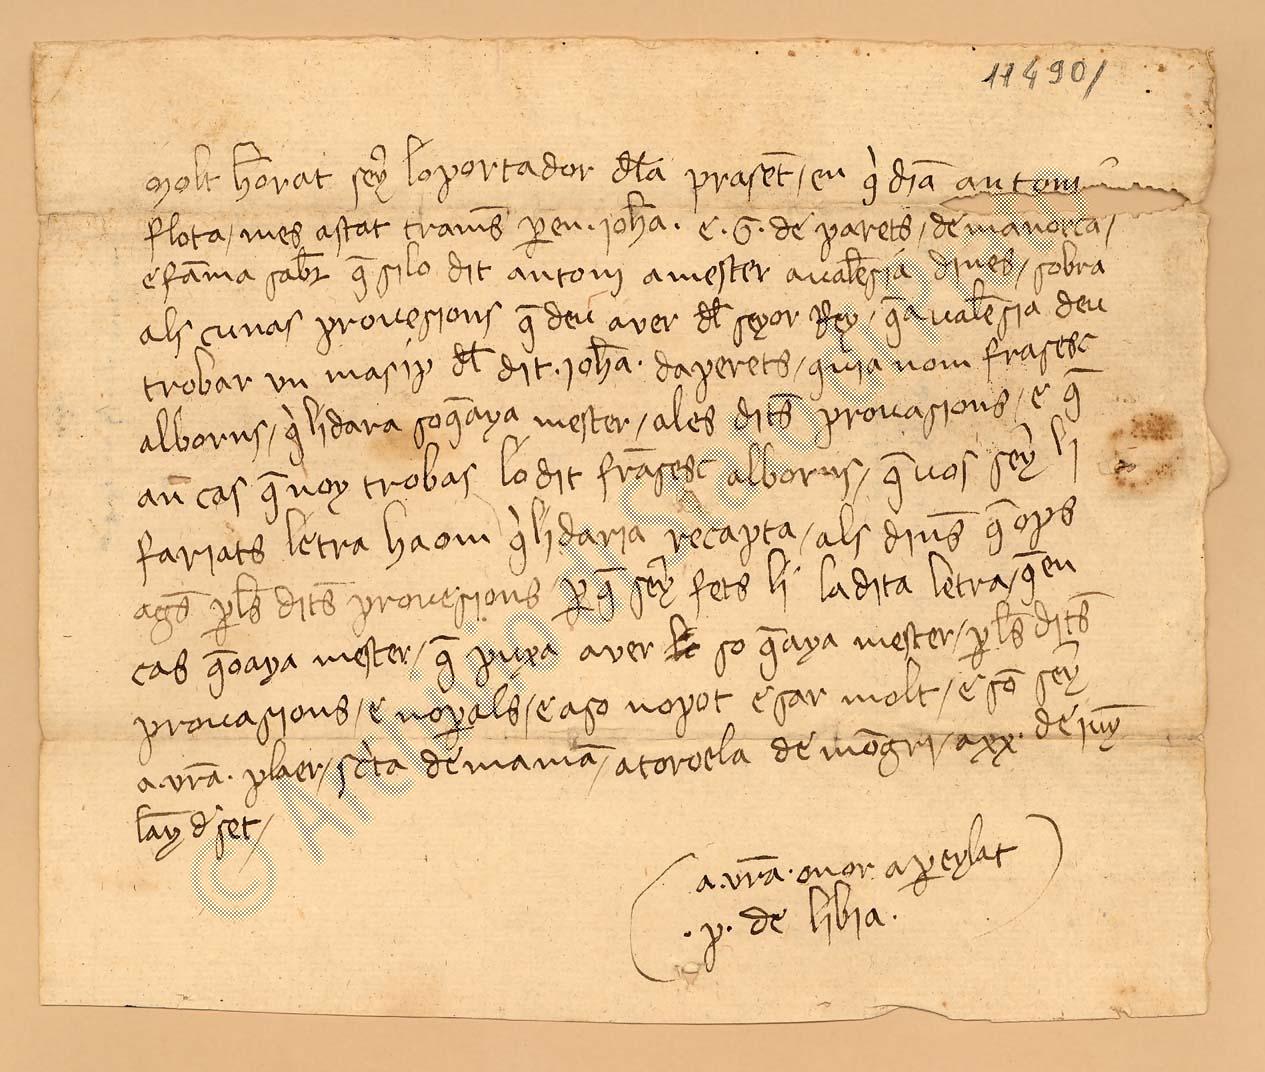 11490/
molt hōrat sēy lo portador dla prasēt / en q̀ diā antoni
flota / mes astat tramēs p en · johā · e · G · de parets / de manorca /
e fāma sabr q̄ si lo dit antonj a mester a valēsia dines / sobra
als cunas prouesions q̄ deu aver dl seyor Rey / q̄ a valēsia deu
trobar un masip dl dit · johā · da perets / quia nom frasesc
alborns / q̀ li dara so q̄ aya mester / a les dits̄ prouasions / e q̄
an cas q̄ noy trobas lo dit frāsesc alborns / q̄ vos sēy li
fariats letra ha om q̀ li daria recapta / als dins̄ q̄ ops
ages̄ p ls̄ dits̄ prouesions p q̄ sēy fets li la dita letra / q̄ en
cas q̄ o aya mester / q̄ puxa aver so q̄ aya mester / p ls̄ dits̄
prouasions / e no p als / e aso no pot esar molt / e sō sēy
a · vrā · plaer / scta de mamā / a toroela de mōgri / a xx · de juy
lāy d set /
a · vrā · onor aperylat
· p · de libia ·
© Archivio di Stato di Prato